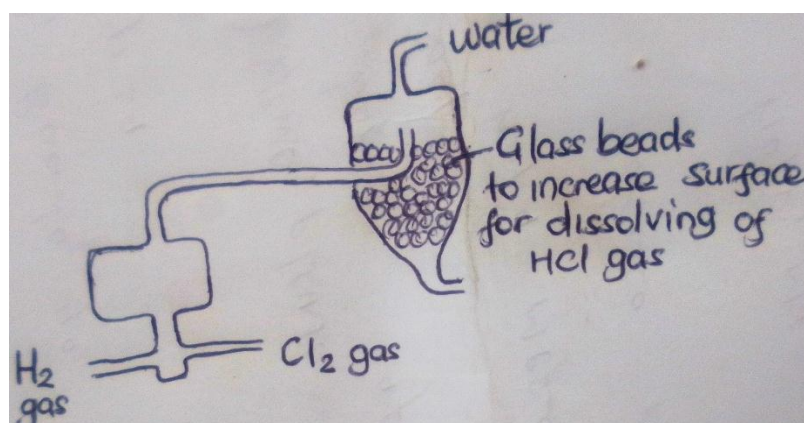 Water
Glass beads
to increase surface
for dissolving of
HCl gas
Cl₂ gas
H₂
gas